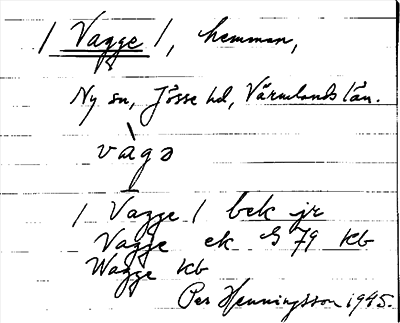 / Vagge /, hemman,
Ny sn, Jösse hd, Värmlands län.
vàgə
/ Vagge / bek jr
Vagge ek S 79 kb
Wagge kb
Per Henningsson 1945.